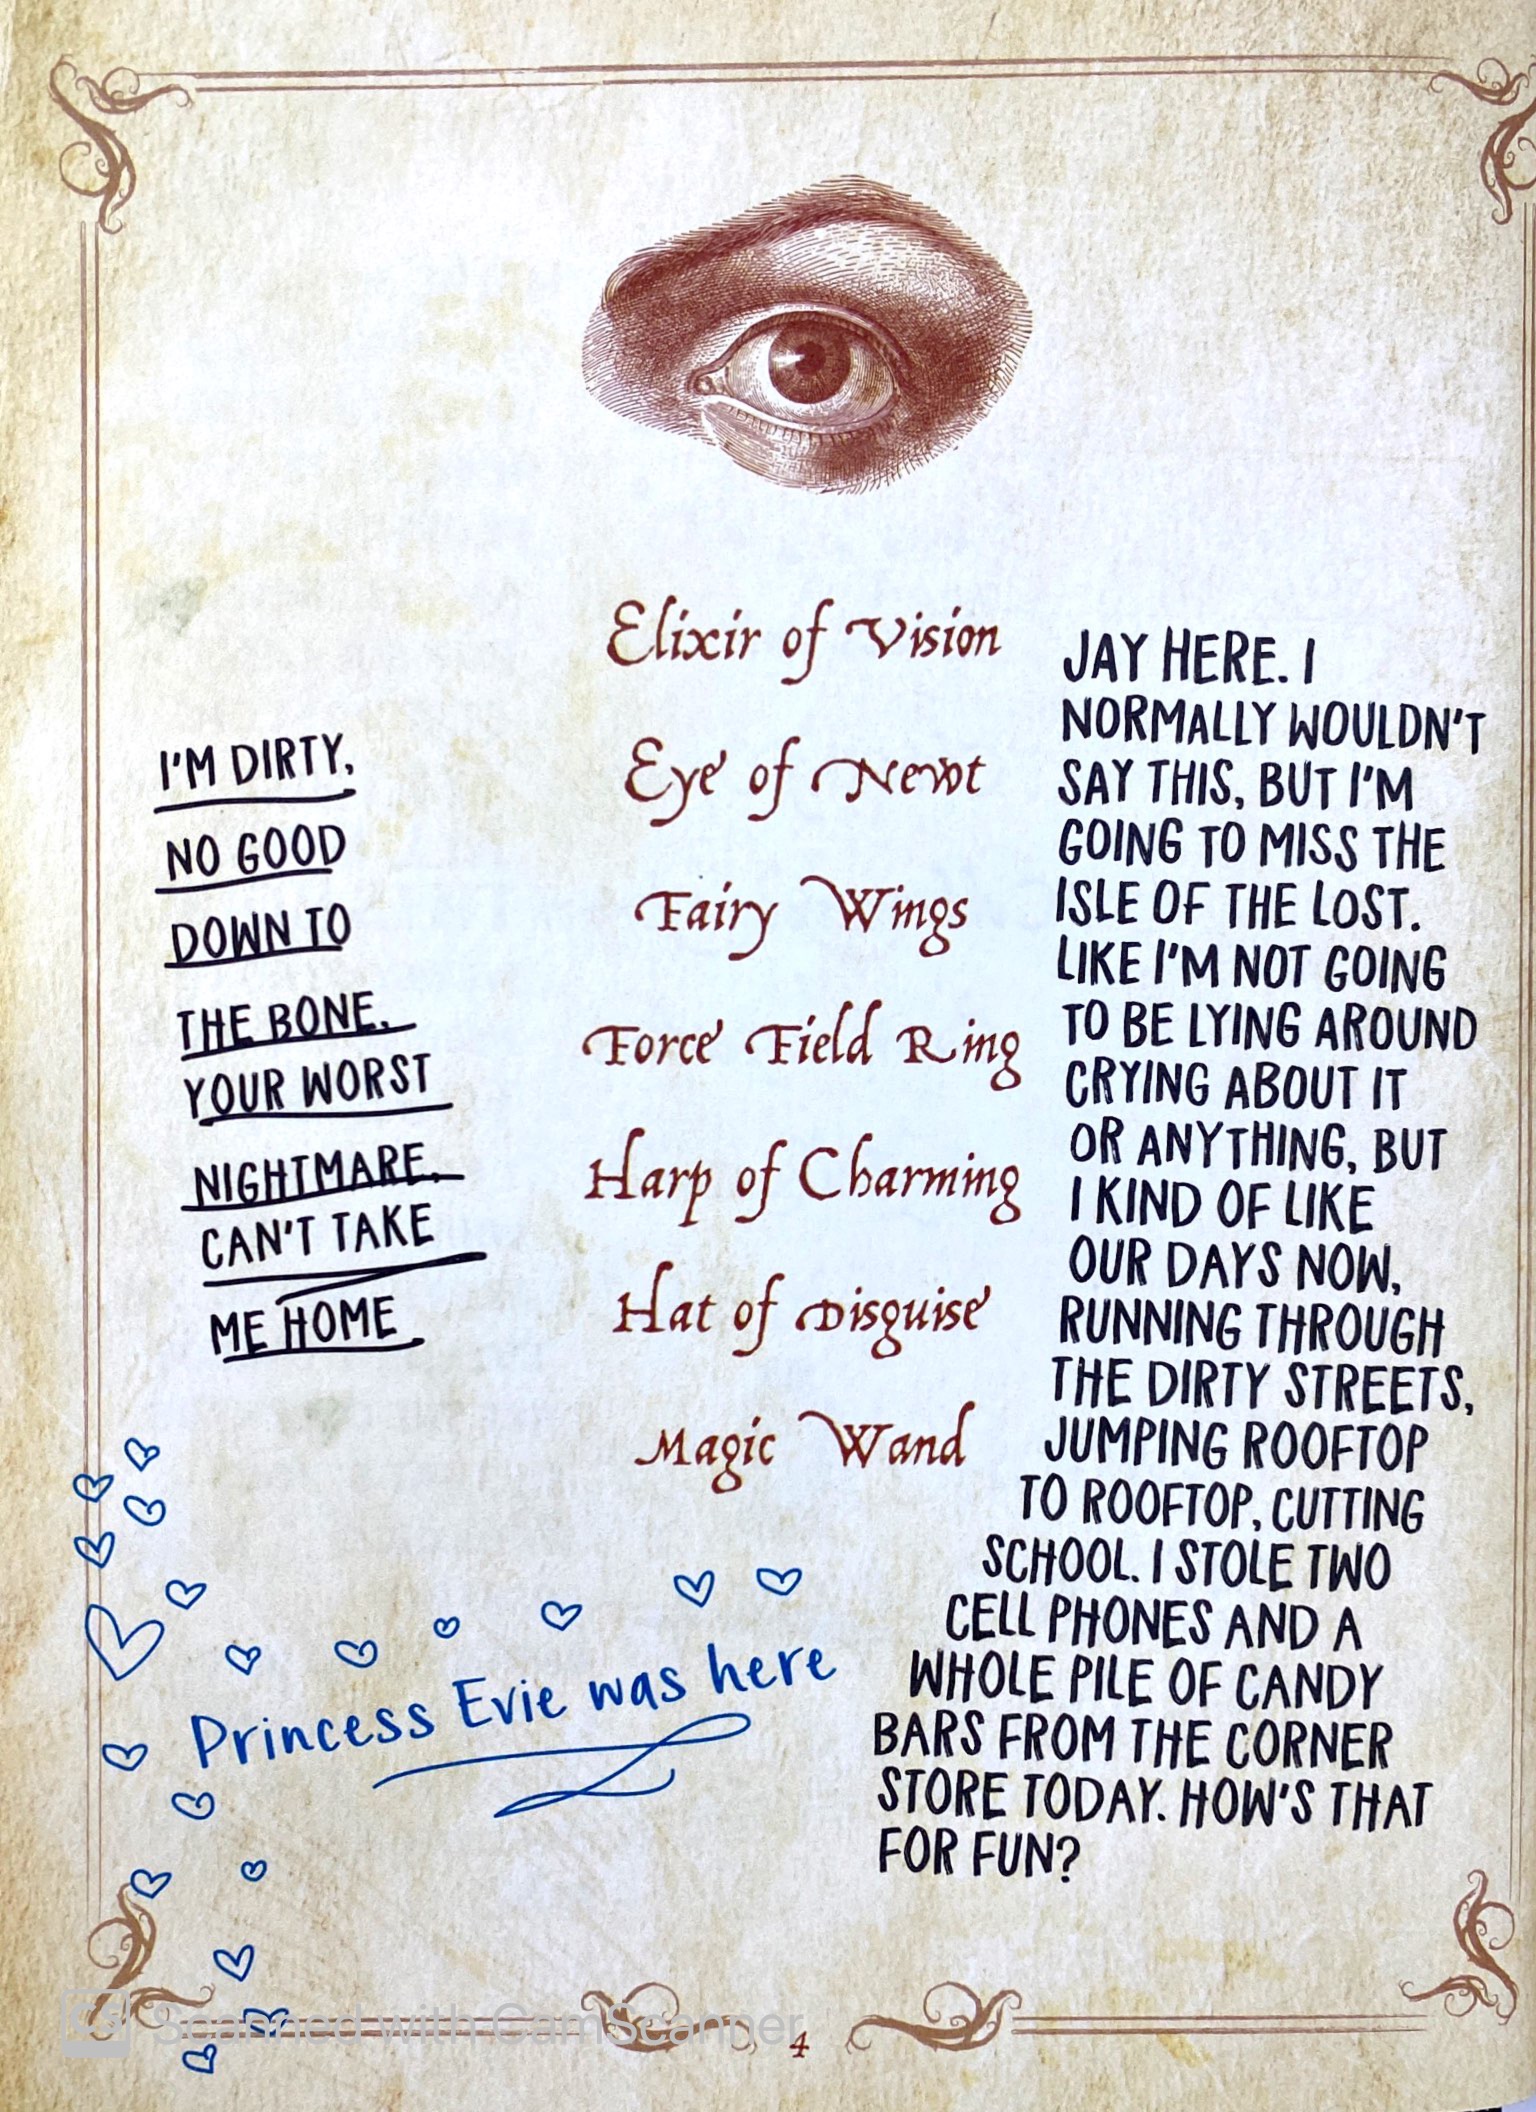 Elixir of Vision
Eye of Newt
Fairy Wings
Force Field Ring
Harp of Charming
Hat of Disguise
Magic Wand
I'M DIRTY,
NO GOOD
DOWN TO
THE BONE.
YOUR WORST
NIGHTMARE.
CAN'T TAKE
ME HOME
JAY HERE. I
NORMALLY WOULDN'T
SAY THIS, BUT I'M
GOING TO MISS THE
ISLE OF THE LOST.
LIKE I'M NOT GOING
TO BE LYING AROUND
CRYING ABOUT IT
OR ANYTHING, BUT
I KIND OF LIKE
OUR DAYS NOW,
RUNNING THROUGH
THE DIRTY STREETS,
JUMPING ROOFTOP
TO ROOFTOP, CUTTING
SCHOOL. I STOLE TWO
CELL PHONES AND A
WHOLE PILE OF CANDY
BARS FROM THE CORNER
STORE TODAY. HOW'S THAT
FOR FUN?
Princess Evie was here
CS Scanned with CamScanner
4